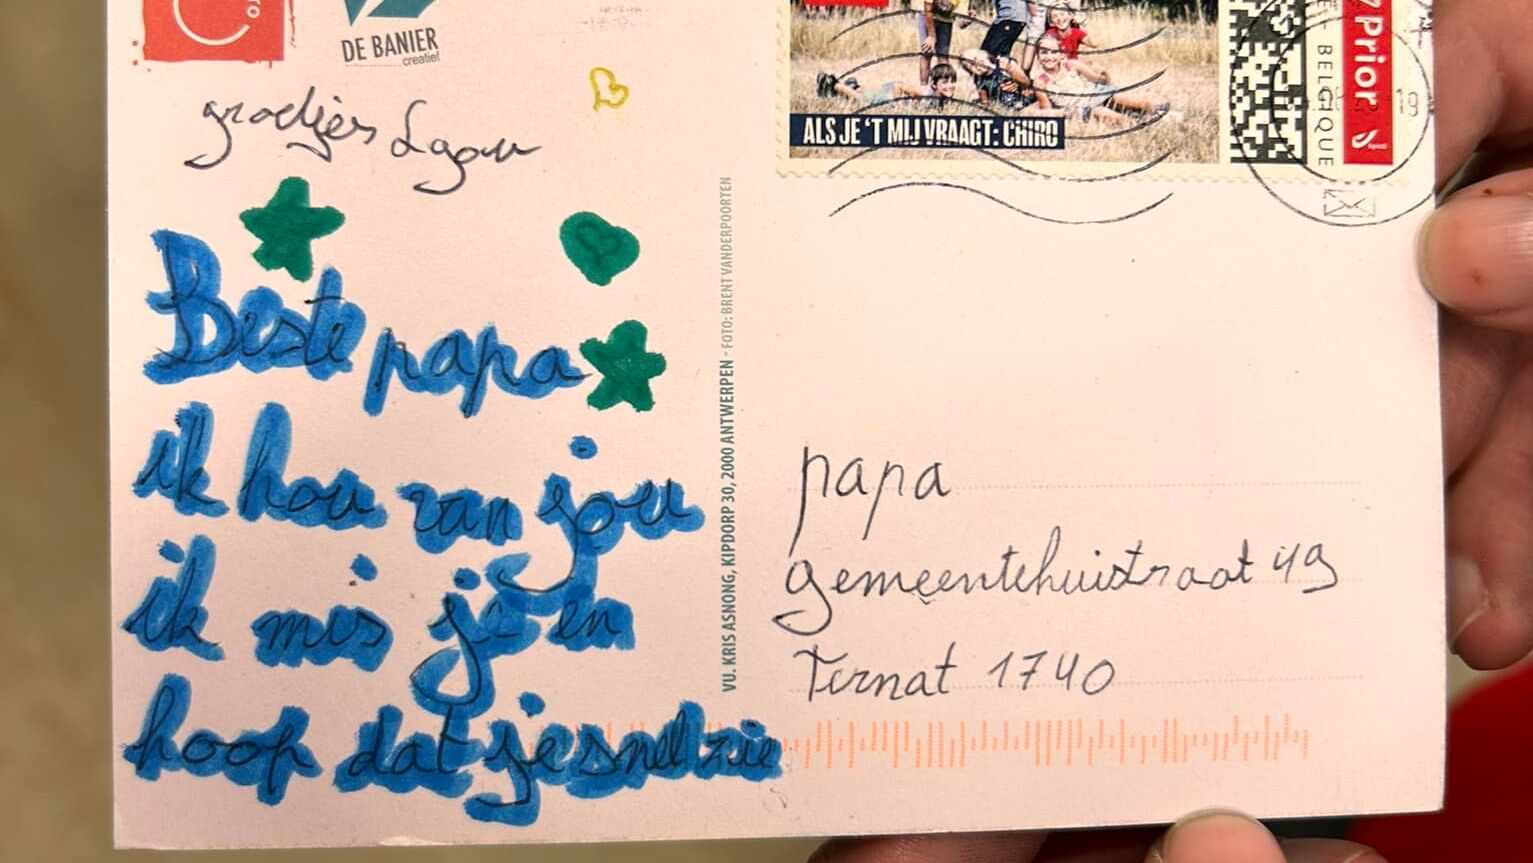 DE BANIER
creatief
groetjes
Beste papa
ik hou van jou
ik mis je en
hoop dat je snel zie
VU. KRIS ASNONG, KIPDORP 30, 2000 ANTWERPEN - FOTO: BRENT VANDERPOORTEN
ALS JE 'T MIJ VRAAGT: CHIRO
BELGIQUE
Prior
papa
gemeentehuistraat 49
Ternat 1740